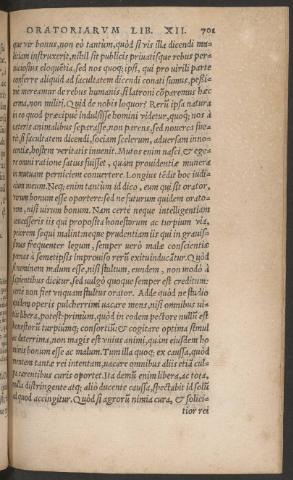 ORATORIARVM LIB. XII. 701
que vir bonus, non eò tantum, quod si vis illa dicendi ma-
litiam instruxerit, nihil sit publicis privatisque rebus per-
niciosius eloquētia, sed nos quoq; ipsi, qui pro uirili parte
conferre aliquid ad facultatem dicendi conati sumus, pessi-
me mereamur de rebus humanis, si latroni cōparemus hæc
arma, non militi. Quid de nobis loquor? Rerū ipsa natura
in eo quod præcipue indulsisse homini videtur, quoq; nos à
cæteris animalibus separasse, non parens, sed noverca fue-
rit, si facultatem dicendi, sociam scelerum, adversam inno-
centiæ, hostem veritatis invenit. Mutos enim nasci, & ege-
re omni ratione satius fuisset, quàm providentiæ munera
in mutuam perniciem convertere. Longius tēdit hoc iudi-
cium meum. Neq; enim tantùm id dico, eum qui sit orator,
virum bonum esse oportere: sed ne futurum quidem orato-
rem, nisi uirum bonum. Nam certè neque intelligentiam
concesseris iis qui proposita honestorum ac turpium via,
peiorem sequi malint: neque prudentiam iis qui in grauissi-
mas frequenter legum, semper uerò malæ conscientiæ
pœnas à semetipsis improuiso rerū exitu inducātur. Quòd
si neminem malum esse, nisi stultum, eundem, non modò à
sapientibus dicitur, sed vulgò quoque semper est creditum:
certe non fiet vnquam stultus orator. Adde quòd ne studio
quidem operis pulcherrimi vacare mens, nisi omnibus ui-
tiis libera, potest: primùm, quòd in eodem pectore nullū est
honestorū turpiumq; consortiū: & cogitare optima simul
ac deterrima, non magis est vnius animi, quàm eiusdem ho-
minis bonum esse ac malum. Tum illa quoq; ex caussa, quòd
mentem tantæ rei intentam, uacare omnibus aliis etiā cul-
pa carentibus curis oportet. Ita demū enim libera, ac tota,
nulla distringente atq; aliò ducente caussa, spectabit id solū
ad quod accingitur. Quòd si agrorū nimia cura, & solici-
tior rei